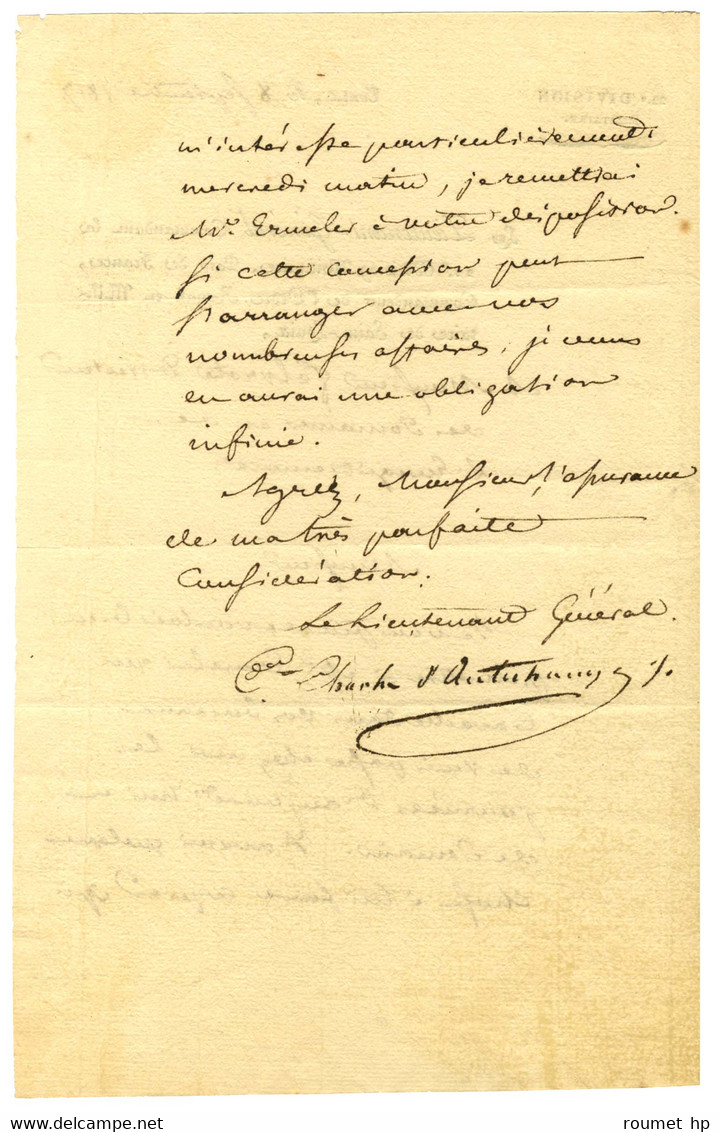 m'intéresse particulièrement
mercredi matin, je remettrai
Mr. Ermeler à votre disposition.
Si cette concession peut
s'arranger avec vos
nombreuses affaires, je vous
en aurai une obligation
infinie.
Agréez, Monsieur, l'assurance
de ma très parfaite
Considération.
Le Lieutenant Général.
Charles d'Autichamp
roumet hp